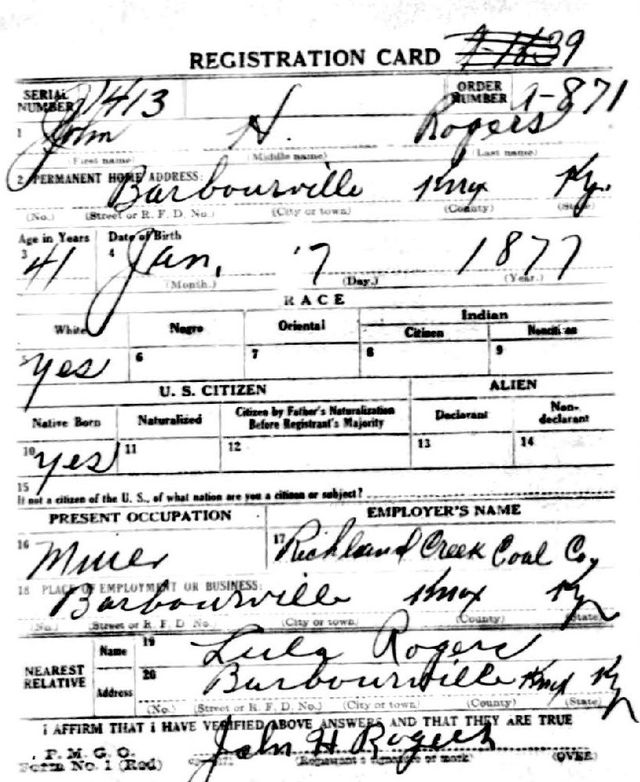 REGISTRATION CARD
SERIAL NUMBER 1413 ORDER NUMBER A-871
1 John H. Rogers
(First name) (Middle name) (Last name)
2 PERMANENT HOME ADDRESS:
Barbourville Knox Ky.
(No.) (Street or R. F. D. No.) (City or town) (County) (State)
Age in Years Date of Birth
3 41 4 Jan. 7 1877
(Month.) (Day.) (Year.)
RACE
White Negro Oriental Indian
Citizen Noncitizen
5 Yes 6 7 8 9
U. S. CITIZEN ALIEN
Native Born Naturalized Citizen by Father's Naturalization Before Registrant's Majority Declarant Non-declarant
10 Yes 11 12 13 14
15
If not a citizen of the U. S., of what nation are you a citizen or subject?
PRESENT OCCUPATION EMPLOYER'S NAME
16 Miner 17 Richland Creek Coal Co,
18 PLACE OF EMPLOYMENT OR BUSINESS:
Barbourville Knox Ky
(No.) (Street or R. F. D. No.) (City or town) (County) (State)
NEAREST RELATIVE
Name 19 Lula Rogers
Address 20 Barbourville Knox Ky
(No.) (Street or R. F. D. No.) (City or town) (County) (State)
I AFFIRM THAT I HAVE VERIFIED ABOVE ANSWERS AND THAT THEY ARE TRUE
P. M. G. O.
Form No. 1 (Red) John H Rogers
(Registrant's signature or mark) (OVER)